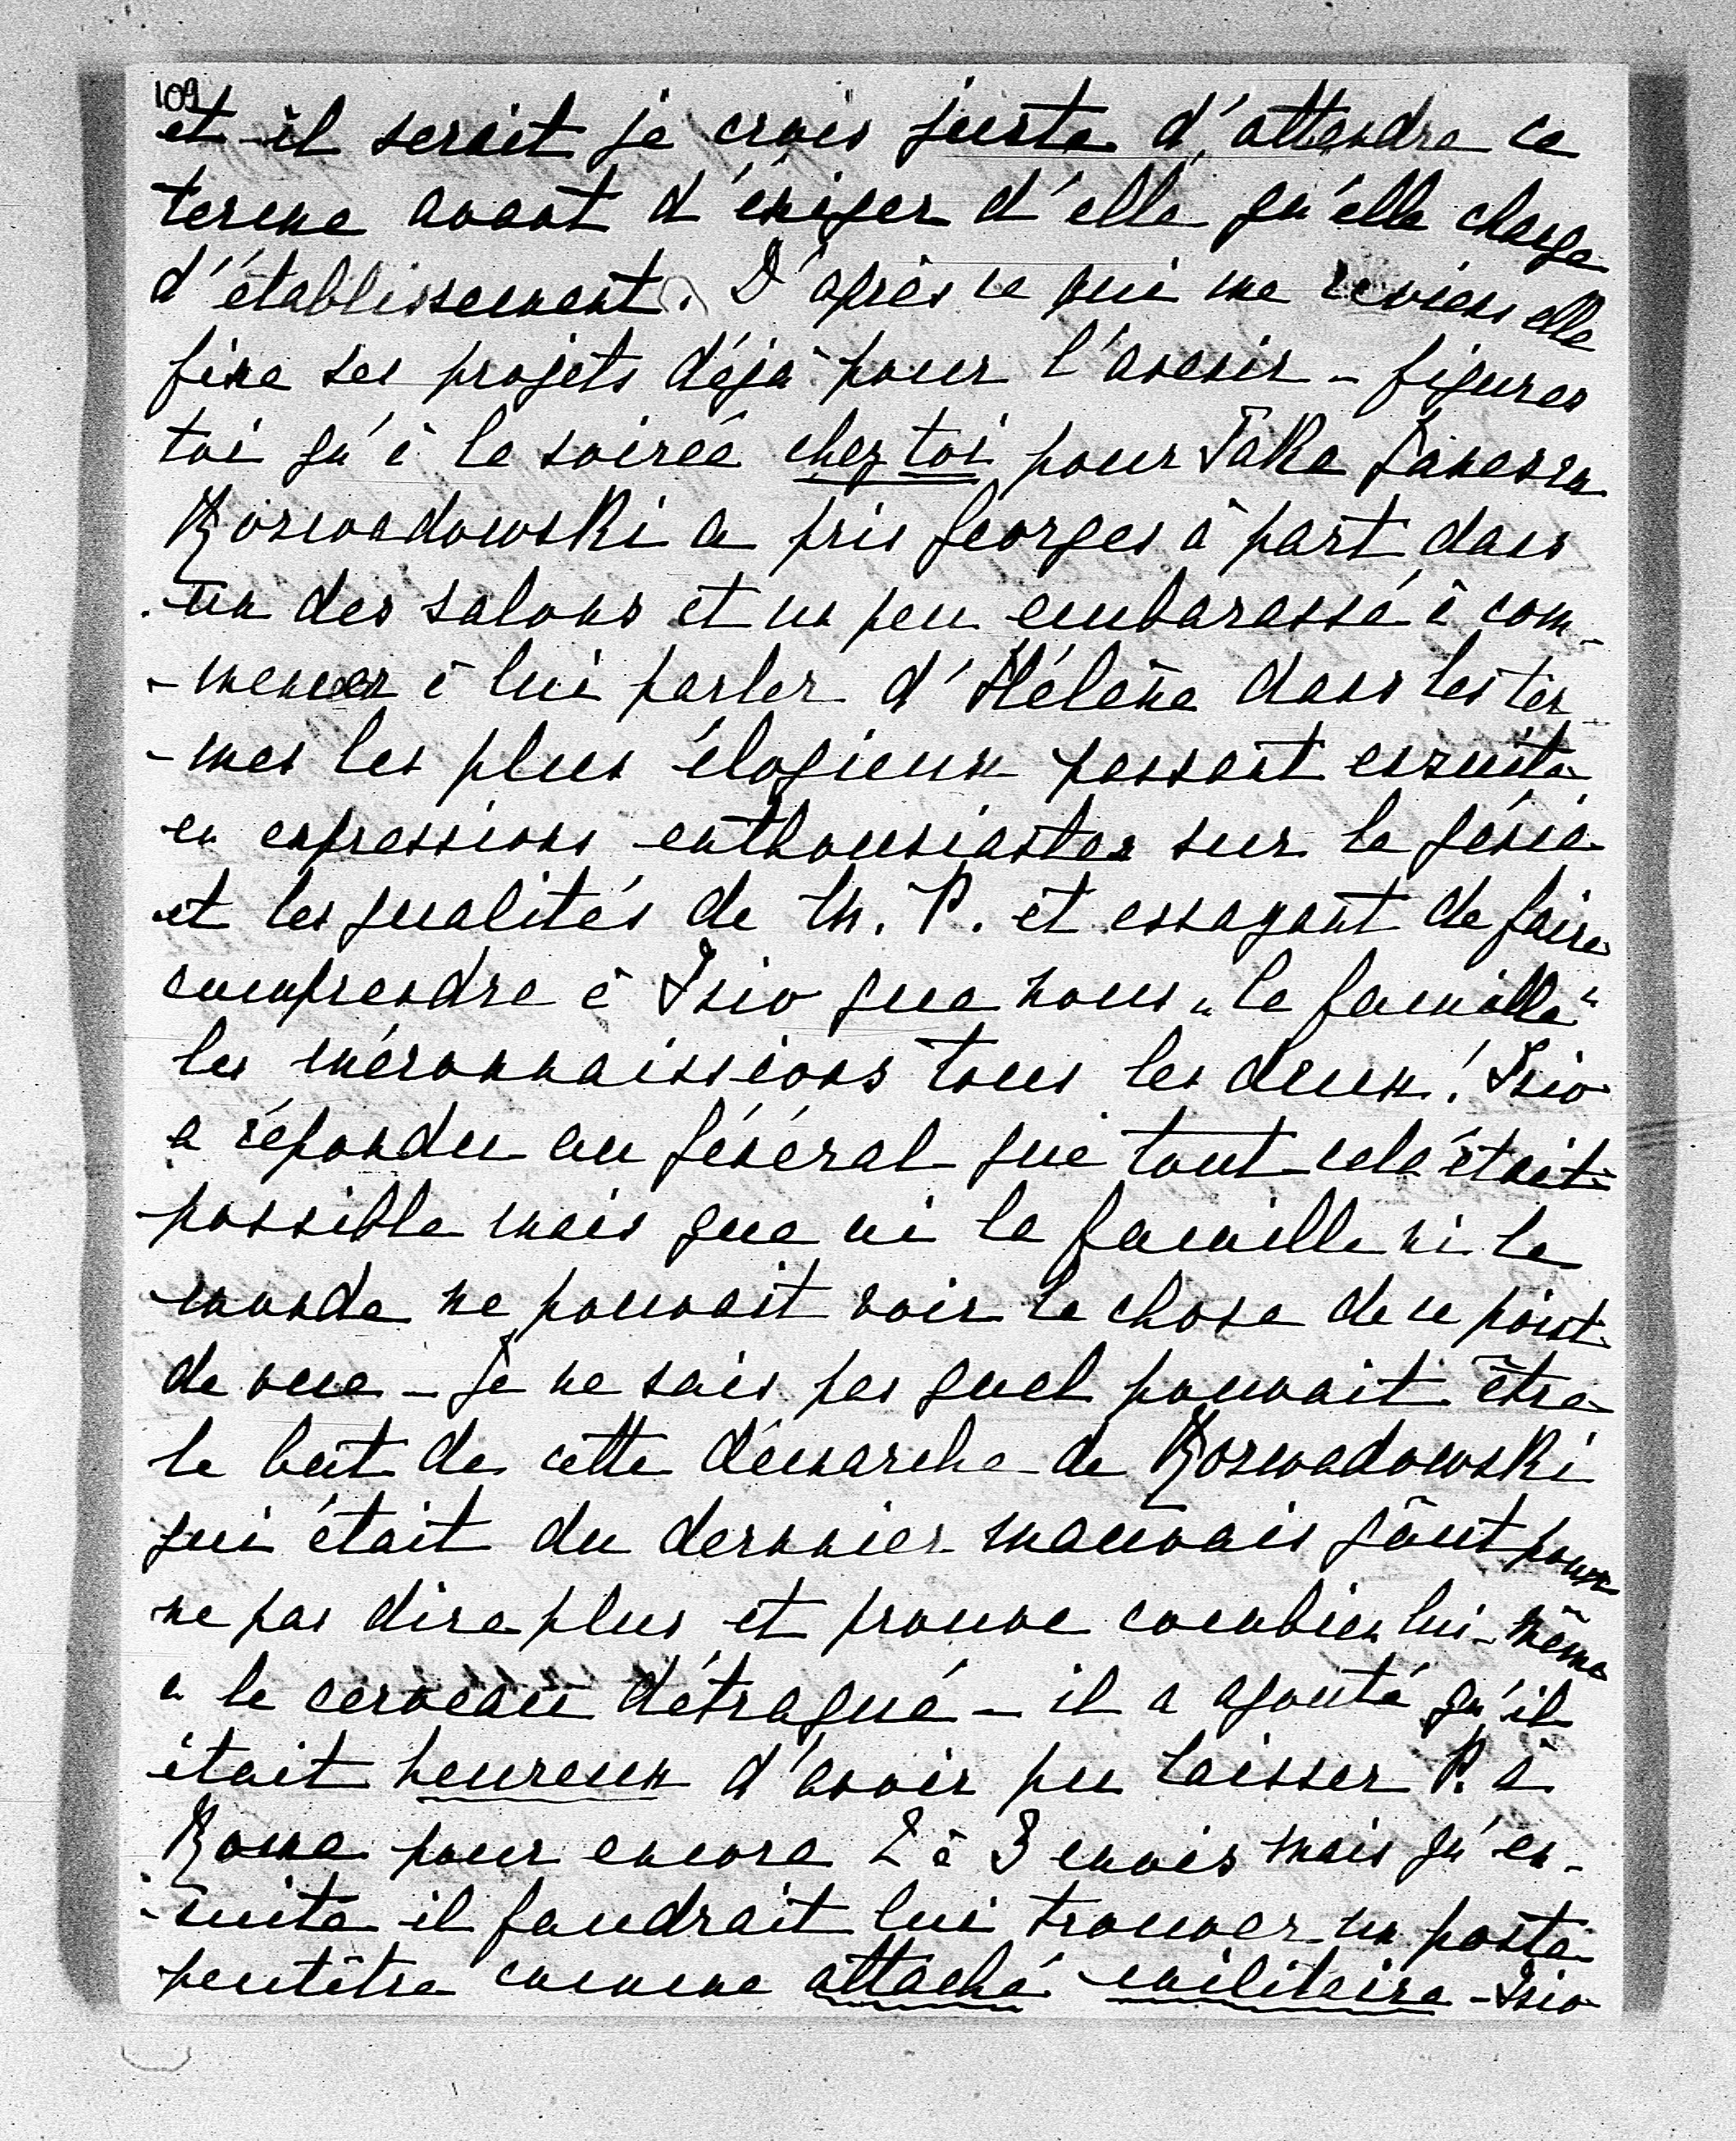 109
et il serait je crois juste d'attendre ce
terme avant d'éxiger d'elle qu'elle change
d'établissement. D'après ce qui me reviens elle
fixe ses projets déjà pour l'avenir - figures
toi qu'à la soirée chez toi pour Take Janescu
Rozwadowski a pris Georges à part dans
un des salons et un peu embarassé à com-
-mencer à lui parler d'Hélène dans les ter-
-mes les plus élogieux passant ensuite
en expressions enthousiastes sur le génie
et les qualités de M. P. et essayant de faire
comprendre à Isio que nous "la famille"
les méconnaissions tous les deux! Isio
a répondu au général que tout cela était
possible mais que ni la famille ni le
monde ne pouvait voir la chose de ce point
de vue - Je ne sais pas quel pouvait être
le but de cette démarche de Rozwadowski
qui était du dernier mauvais goût pour
ne pas dire plus et prouve combien lui-même
a le cerveau détraqué - il a ajouté qu'il
était heureux d'avoir pu laisser P. à
Rome pour encore 2 à 3 mois mais qu'en-
-suite il faudrait lui trouver un poste
peutêtre comme attaché militaire - Isio